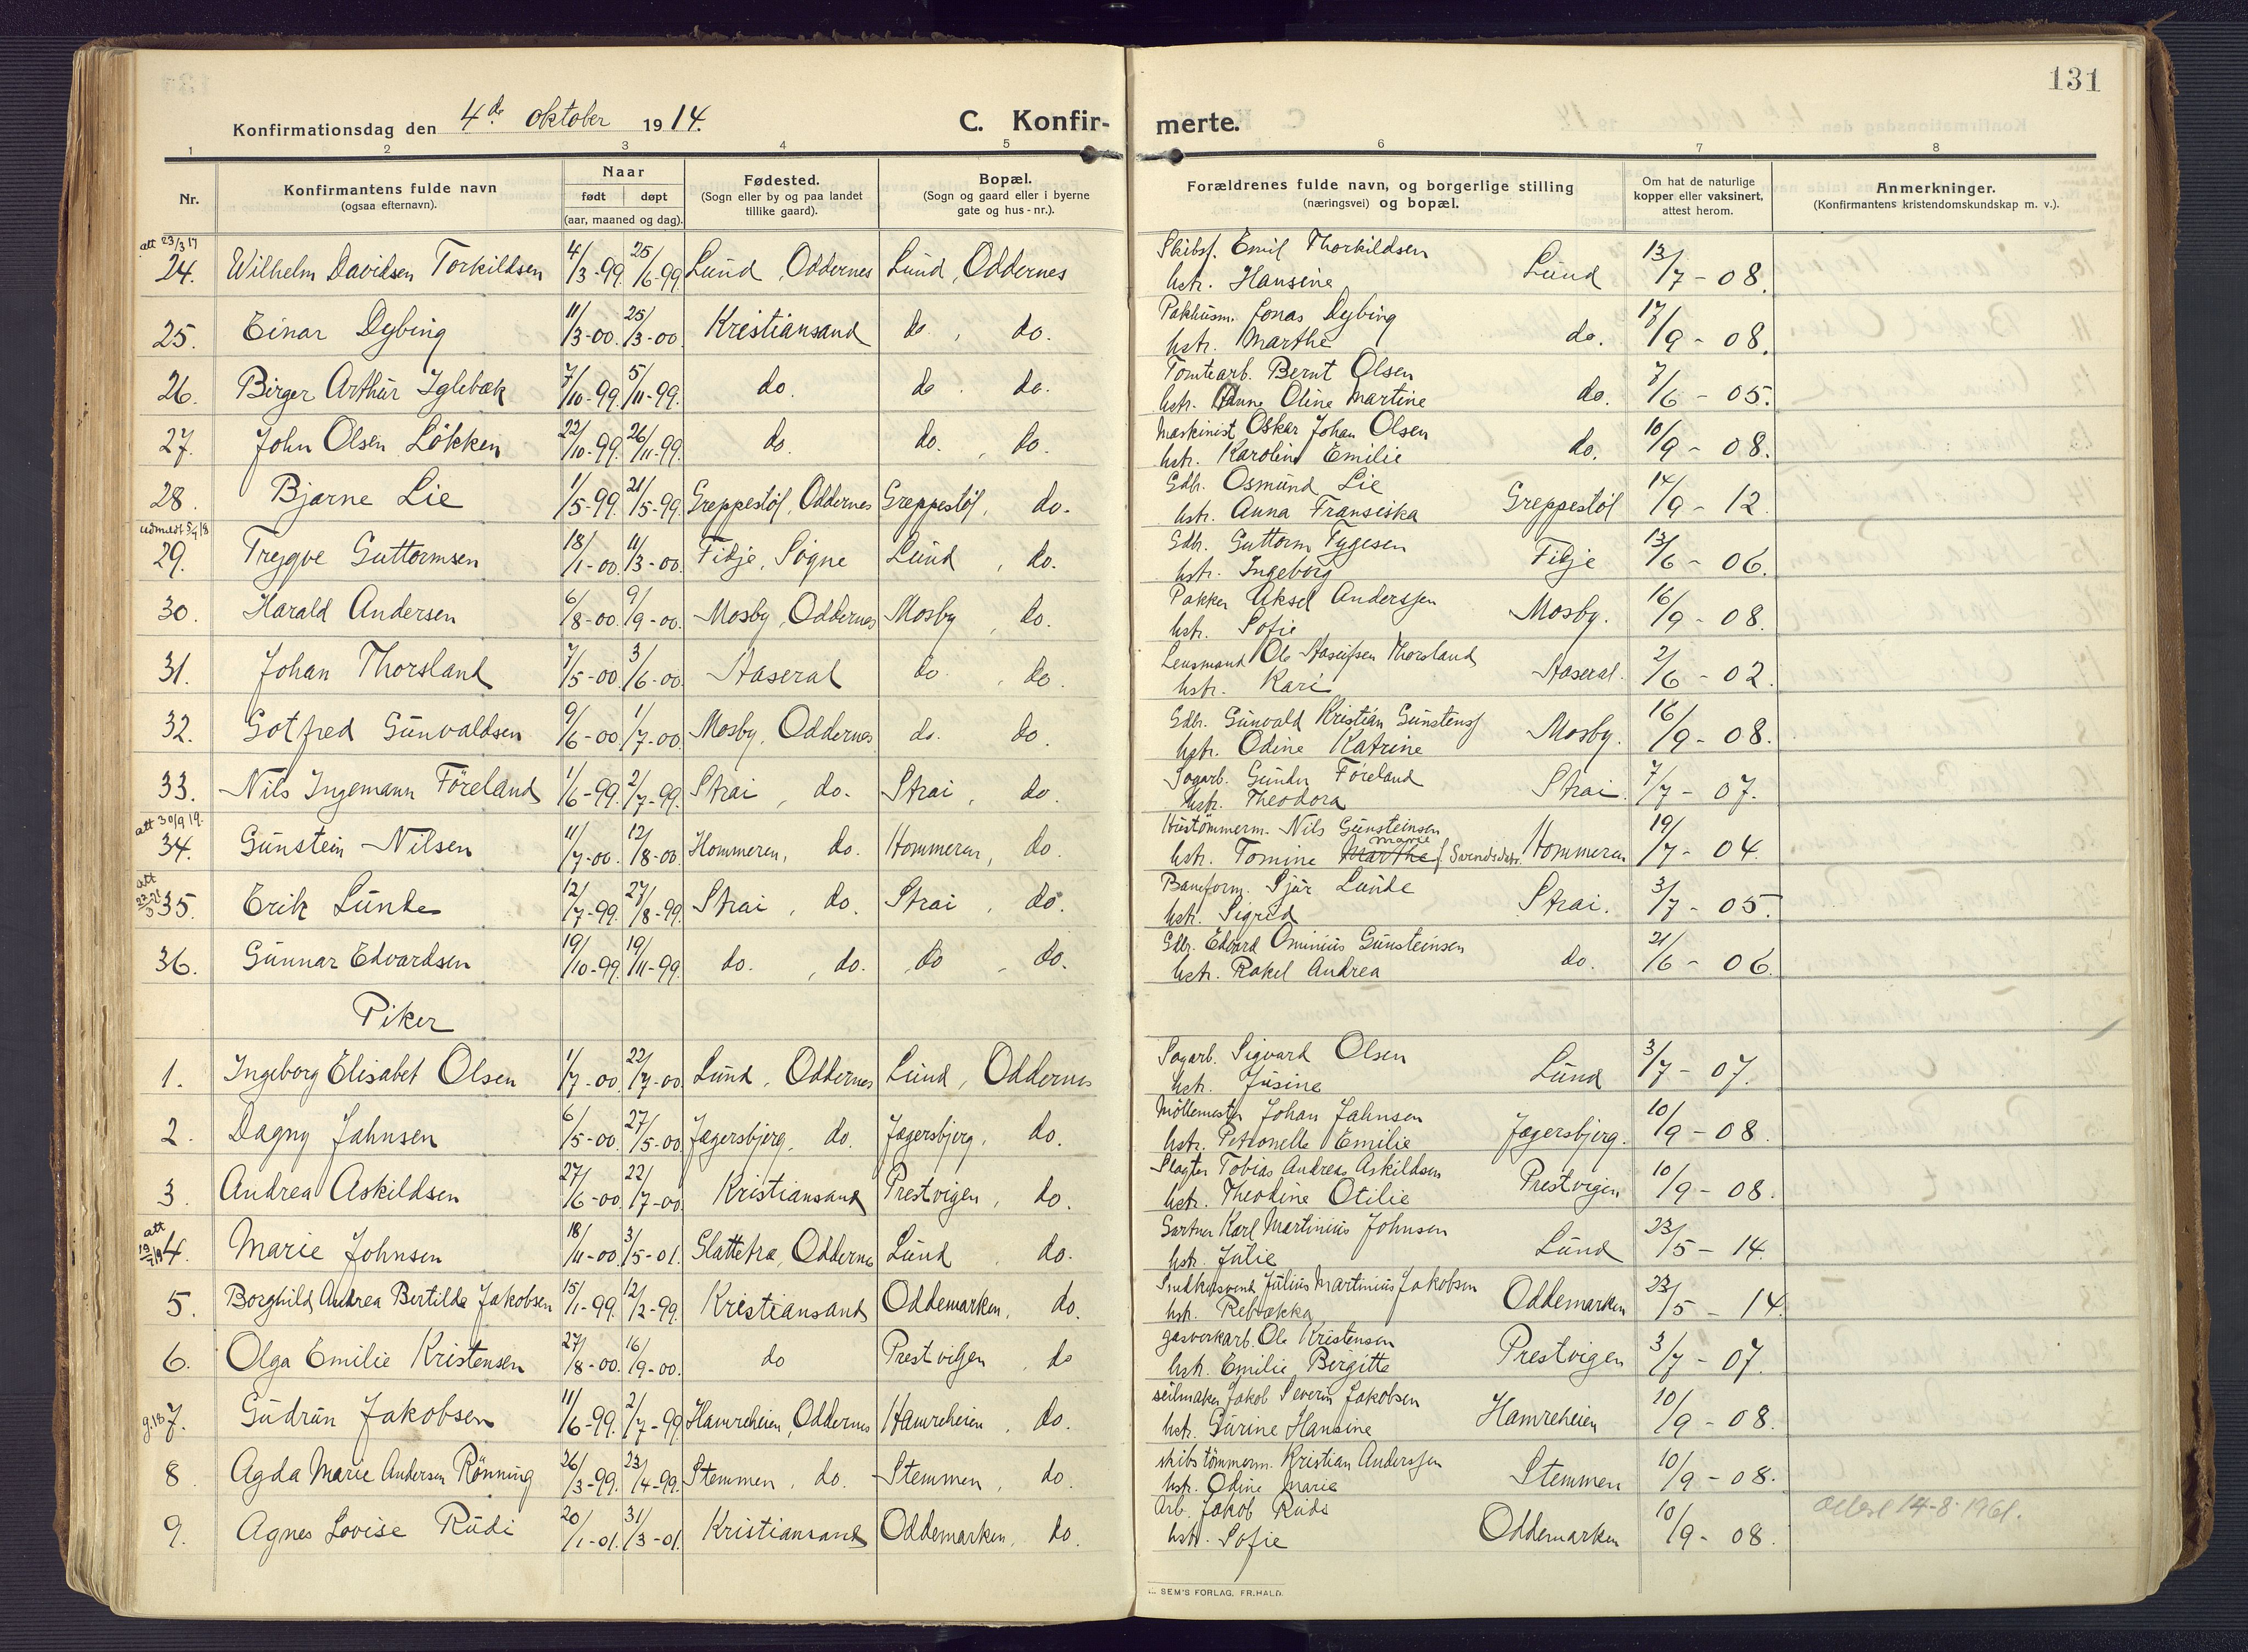 131
Konfirmationsdag den 4de oktober 1914. C. Konfir- merte.
1 2 3 4 5 6 7 8
Nr. Konfirmantens fulde navn (ogsaa efternavn). Naar født døpt (aar, maaned og dag). Fødested. (Sogn eller by og paa landet tillike gaard). Bopæl. (Sogn og gaard eller i byerne gate og hus-nr.). Forældrenes fulde navn, og borgerlige stilling (næringsvei) og bopæl. Om hat de naturlige kopper eller vaksinert, attest herom. Anmerkninger. (Konfirmantens kristendomskundskap m. v.).
att 23/3 17
24. Wilhelm Davidsen Torkildsen 4/3-99 25/6-99 Lund, Oddernes Lund, Oddernes Skibsf. Emil Thorkildsen
hstr. Hansine Lund 13/7-08.
25. Einar Dybing 11/3-00. 25/3-00. Kristiansand do, do. Pakhusm. Jonas Dybing
hstr. Marthe do. 17/9-08.
26. Birger Arthur Iglebæk 7/10-99. 5/11-99. do. do. do. Tomtearb. Bernt Olsen
hstr. Anne Oline Martine do. 7/6-05.
27. John Olsen Lökken 22/10-99. 26/11-99. do. do. do. Maskinist Oskar Johan Olsen
hstr. Karoline Emilie do. 10/9-08.
28. Bjarne Lie 1/5-99. 21/5-99. Greppestøl, Oddernes Greppestøl, do. Gdbr. Osmund Lie
hstr. Anna Fransiska Greppestøl 14/9-12.
udmeldt 5/9 18
29. Trygve Guttormsen 18/1-00. 11/3-00. Fidje, Søgne Lund, do. Gdbr. Guttorm Tygesen
hstr. Ingeborg Fidje 13/6-06.
30. Harald Andersen 6/8-00. 9/9-00. Mosby, Oddernes Mosby, do. Pakker Aksel Anderssen
hstr. Sofie Mosby. 16/9-08.
31. Johan Thorsland 7/5-00. 3/6-00. Aaseral do, do. Lensmand Ole Thorsland
hstr. Kari Aaseral. 2/6-02.
32. Gotfred Gunvaldsen 9/6-00. 1/7-00. Mosby, Oddernes do. do. Gdbr. Gunvald Kristian Gunstens.
hstr. Odine Katrine Mosby. 16/9-08.
33. Nils Ingemann Föreland 1/6-99. 2/7-99. Strai, do. Strai, do. Sagarb. Gunder Føreland
hstr. Theodora Strai. 7/7-07.
att 30/9 19.
34. Gunstein Nilsen 11/7-00. 12/8-00. Hommeren, do. Hommeren, do. Hustømmerm. Nils Gunsteinsen
hstr. Tomine Marthe Marie f. Hommeren 19/7-04.
att
35. Erik Lunde 12/7-99. 27/8-99. Strai, do. Strai, do. Baneform. Sjur Lunde
hstr. Sigrid Strai. 3/7-05.
36. Gunnar Edvardsen 19/10-99. 19/11-99. do., do. do, do. Gdbr. Edvard Ominius Gunsteinsen
hstr. Rakel Andrea do. 21/6-06.
Piker
1. Ingeborg Elisabet Olsen 1/7-00. 22/7-00. Lund, Oddernes Lund, Oddernes Sagarb. Sigvard Olsen
hstr. Jusine Lund 3/7-07.
2. Dagny Jahnsen 6/5-00. 27/5-00. Jægersbjerg, do. Jægersbjerg, do. Möllemester Johan Jahnsen
hstr. Petronelle Emilie Jægersbjerg. 10/9-08.
3. Andrea Askildsen 27/6-00. 22/7-00. Kristiansand Prestvigen, do. Slagter Tobias Andreas Askildsen
hstr. Theodine Otilie Prestvigen 10/9-08.
att
4. Marie Johnsen 18/11-00. 3/5-01. Slattetræ, Oddernes Lund, do. Gartner Karl Martinius Johnsen
hstr. Julie Lund 23/5-14.
5. Borghild Andrea Bertilde Jakobsen 15/1-99. 12/2-99. Kristiansand Oddemarken, do. Snedkersvend Julius Martinius Jakobsen
hstr. Rebekka Oddemarken 23/5-14.
6. Olga Emilie Kristensen 27/8-00. 16/9-00. do Prestvigen, do gasverkarb. Ole Kristensen
hstr. Emilie Birgitte Prestvigen 3/7-07.
7. Gudrun Jakobsen 11/6-99. 2/7-99 Hamreheien, Oddernes Hamreheien, do. seilmaker Jakob Severin Jakobsen
hstr. Gurine Hansine Hamreheien 10/9-08.
8. Agda Marie Andersen Rönning 26/3-99. 23/4-99. Stemmen, do. Stemmen, do. skibstömmerm. Kristian Anderssen
hstr. Odine Marie Stemmen 10/9-08.
9. Agnes Lovise Rudi 20/1-01. 31/3-01. Kristiansand Oddemarken, do. Arb. Jakob Rudi
hstr. Sofie Oddemarken 10/9-08. Attest 14-8-1961.
SEM'S FORLAG, FR.HALD.